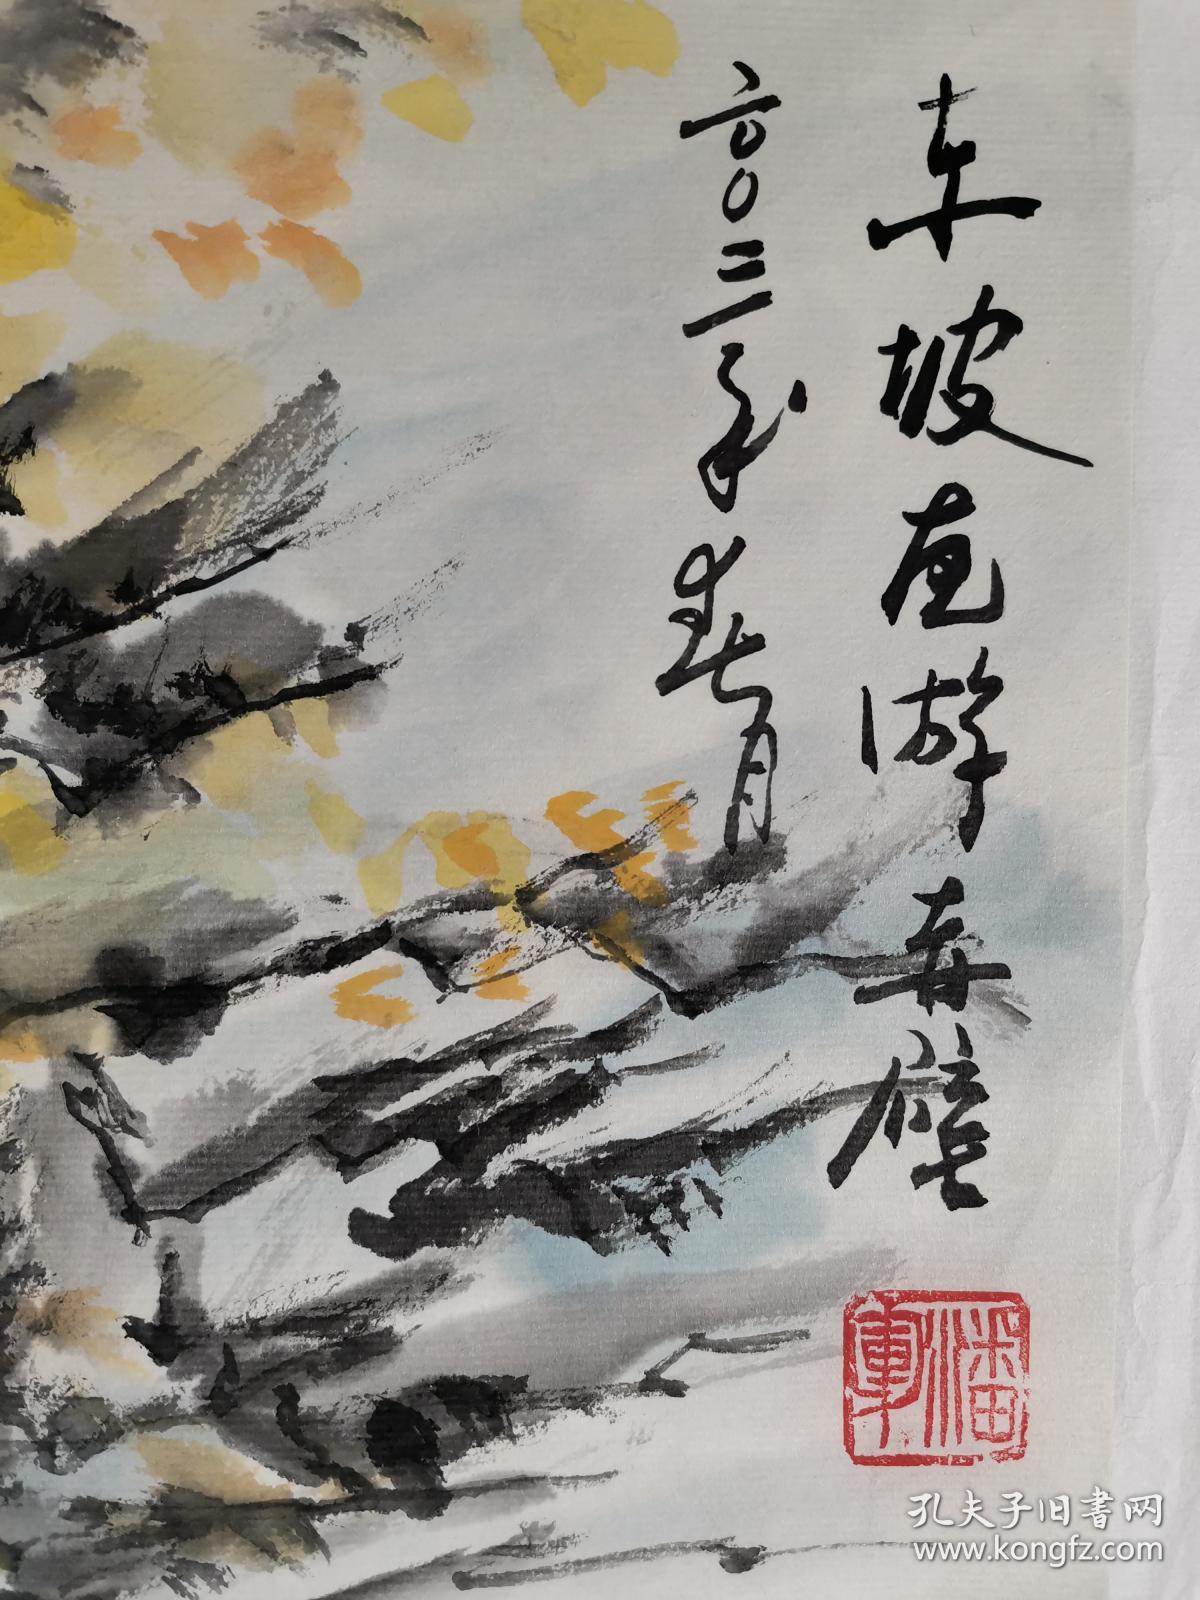 东坡游赤壁
二〇〇三年七月
潘軍
孔夫子旧书网
www.kongfz.com